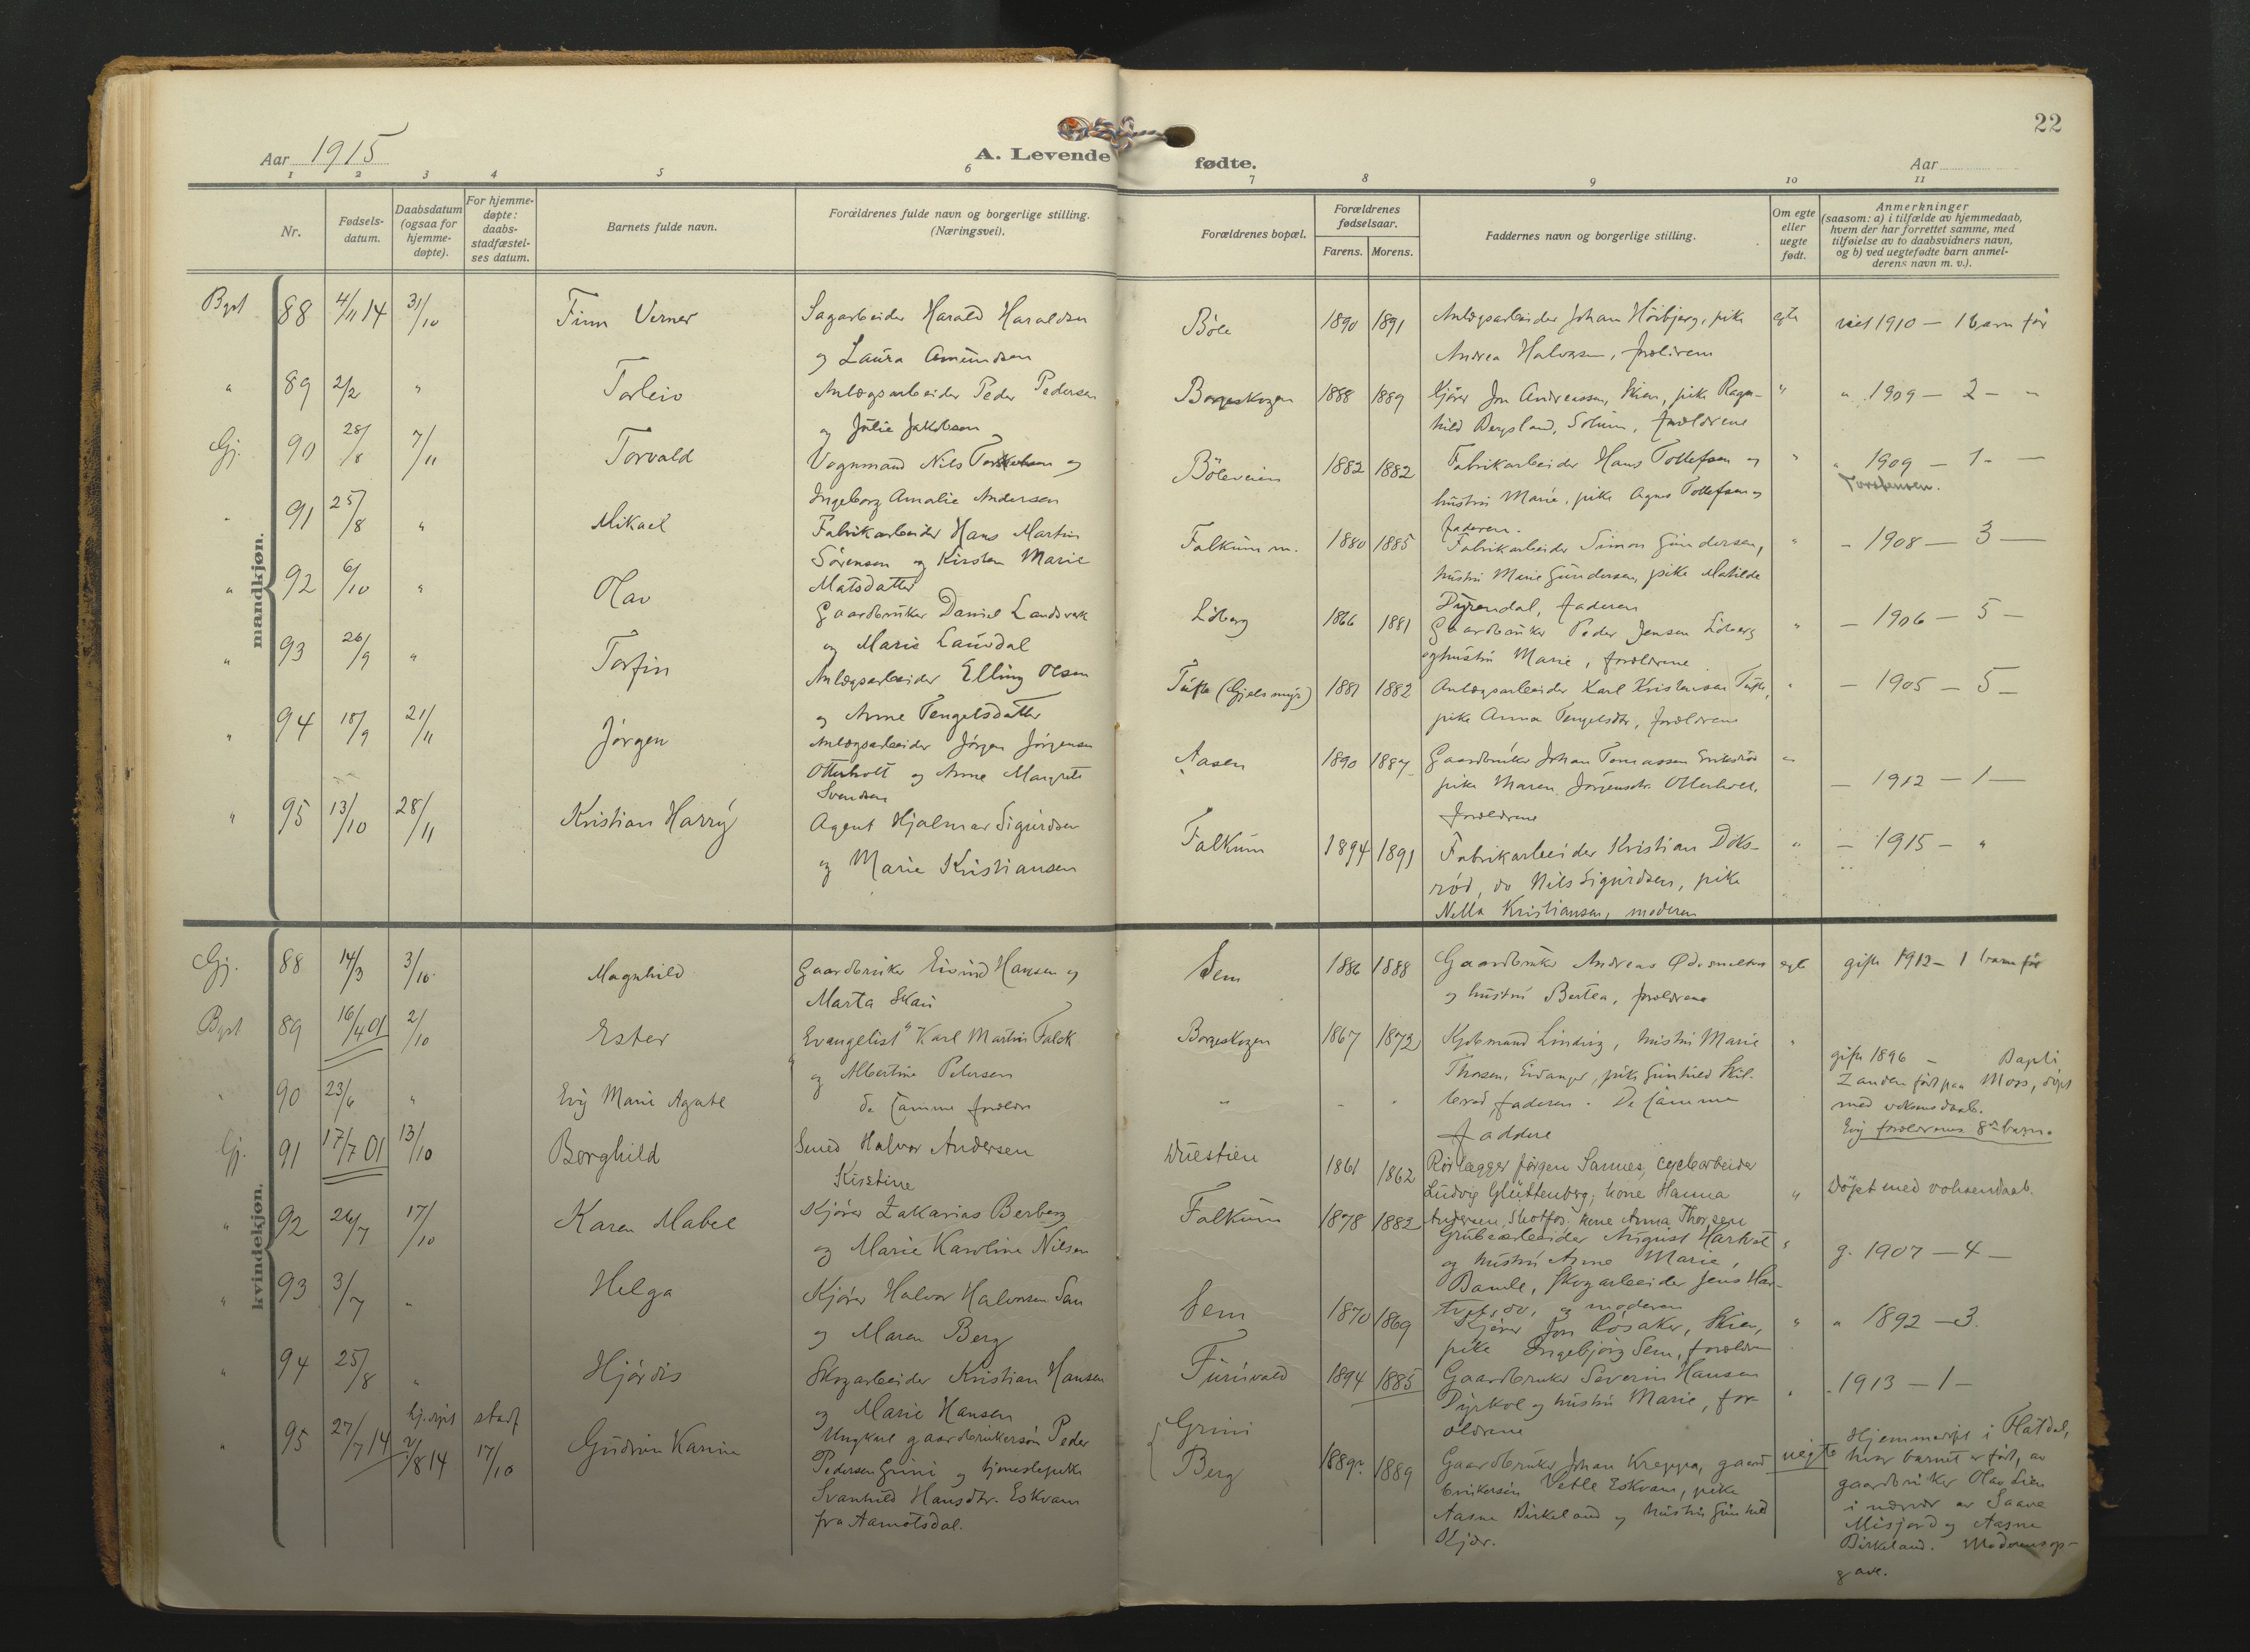 22
Aar 1915
A. Levende fødte.
Aar
1 2 3 4 5 6 7 8 9 10 11
Nr.
Fødsels-
datum.
Daabsdatum
(ogsaa for
hjemme-
døpte).
For hjemme-
døpte:
daabs-
stadfæstel-
ses datum.
Barnets fulde navn.
Forældrenes fulde navn og borgerlige stilling.
(Næringsvei).
Forældrenes bopæl.
Forældrenes
fødselsaar.
Farens. Morens.
Faddernes navn og borgerlige stilling.
Om egte
eller
uegte
født.
Anmerkninger
(saasom: a) i tilfælde av hjemmedaab,
hvem der har forrettet samme, med
tilføielse av to daabsvidners navn,
og b) ved uegtefødte barn anmel-
derens navn m. v.).
mandkjøn.
88 4/11 14 31/10 Finn Verner Sagarbeider Harald Haraldsen Bøle 1890 1891 Anlægsarbeider Johan pike egte 1910 — 1 barn før
og Laura Amundsen Andrea Halvorsen, forældrene
" 89 2/2 " Torleiv Anlægsarbeider Peder Pedersen Borgeskogen 1888 1889 Kjører Jon Andreassen, Skien, pike Ragn- " " 1909 — 2 — "
og Julie Jakobsen hild Bergsland, Solum, forældrene
Gj. 90 28/8 7/11 Torvald Vognmand Nils og Böleveien 1882 1882 Fabrikarbeider Hans Tollefsen og " " 1909 — 1 — —
Ingeborg Amalie Andersen hustru Marie, pike Agnes Tollefsen og Torstensen.
faderen.
91 25/8 " Mikael Fabrikarbeider Hans Martin Falkum 1880 1885 Fabrikarbeider Simon Gundersen, " — 1908 — 3 —
Sörensen og Kirsten Marie hustru Marie Gundersen, pike Matilde
Matsdatter Dyrendal, faderen
" 92 6/10 " Olav Gaardbruker Daniel Landsverk Liberg 1866 1881 Gaardbruker Peder Jensen Liberg " — 1906 — 5 —
og Marie Laurdal og hustru Marie, forældrene
" 93 26/9 " Torfin Anlægsarbeider Elling Olsen Tufte (Gjelsmyr) 1881 1882 Anlægsarbeider Karl Kristensen Tufte, " — 1905 — 5 —
og Anne Tengelsdatter pike Anna Tengelsdtr, forældrene
" 94 18/9 21/11 Jörgen Anlægsarbeider Jörgen Jörgensen Aasen 1890 1887 Gaardbruker Johan Tomassen Eriksrød " — 1912 — 1 —
Otterholt og Anne Margrete pike Maren Jörgensdtr. Otterholt,
Svendsen forældrene
" 95 13/10 28/11 Kristian Harry Agent Hjalmar Sigurdsen Falkum 1894 1891 Fabrikarbeider Kristian Doks- " — 1915 — "
og Marie Kristiansen rød, do Nils Sigurdsen, pike
Nella Kristiansen, moderen
kvindekjøn.
Gj. 88 14/3 3/10 Magnhild Gaardbruker Eivind Hansen og Sem 1886 1888 Gaardbruker Andreas egte gift 1912 — 1 barn før
Marta Skau og hustru Bertea, forældrene
89 16/4 01 2/10 Ester "Evangelist" Karl Martin Falck Borgeskogen 1867 1872 Kjøbmand Lindvig, hustru Marie " gift 1896 —
og Albertine Petersen Thorsen, Eidanger, pike Gunhild faderen. født paa Moss, döpt
med voksendaab.
" 90 23/6 " Evy Marie Agate de samme forældre " De samme
faddere Evy forældrenes 8de barn.
Gj. 91 17/7 01 13/10 Borghild Smed Halvor Andersen 1861 1862 Rørlægger Jörgen Sannes, cyclearbeider
Kirstine Ludvig Gluttenberg, kone Hanna " Döpt med voksendaab.
Andersen, Skotfos, kone Anna Thorsen
" 92 26/7 17/10 Karen Mabel Kjører Zakarias Berberg Falkum 1878 1882 Grubearbeider August Hartvet " g. 1907 — 4 —
og Marie Karoline Nilsen og hustru Anne Marie,
Bamle, Skogarbeider Jens Har-
tvet, do, og moderen
" 93 3/7 " Helga Kjører Halvor Halvorsen Sem 1870 1869 Kjører Jon Rosaker, Skien, " " 1892 — 3.
og Maren Berg pike Ingebjörg Sem, forældre
" 94 25/8 " Hjördis Skogarbeider Kristian Hansen Furuvald 1894 1885 Gaardbruker Severin Hansen " 1913 — 1 —
og Marie Hansen Dyrkol og hustru Marie, for-
ældrene
" 95 27/7 14 hj. döpt 2/8 14 stadf 17/10 Gudrun Karine Ungkarl gaardbrukersøn Peder Grini 1889 1889 Gaardbruker Johan Kreppa, gaard- uegte Hjemmedöpt i Flatdal,
Pedersen Grini og tjenestepike Berg brukersøn Vetle Eskvam, pike hvor barnet er født, av
Svanhild Hansdtr. Eskvam Aasne Birkeland og hustru Gunhild gaardbruker Olav Lien
fra Aamotsdal. Kjær. i nærvær av Saave
Misjord og Aasne
Birkeland. Moderens op-
gave.